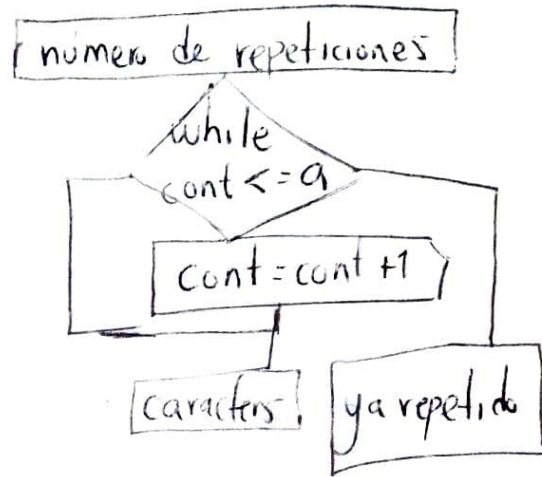 número de repeticiones
while
cont <= a
cont = cont +1
caracters
ya repetido